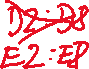 D2:D8
E2:E8